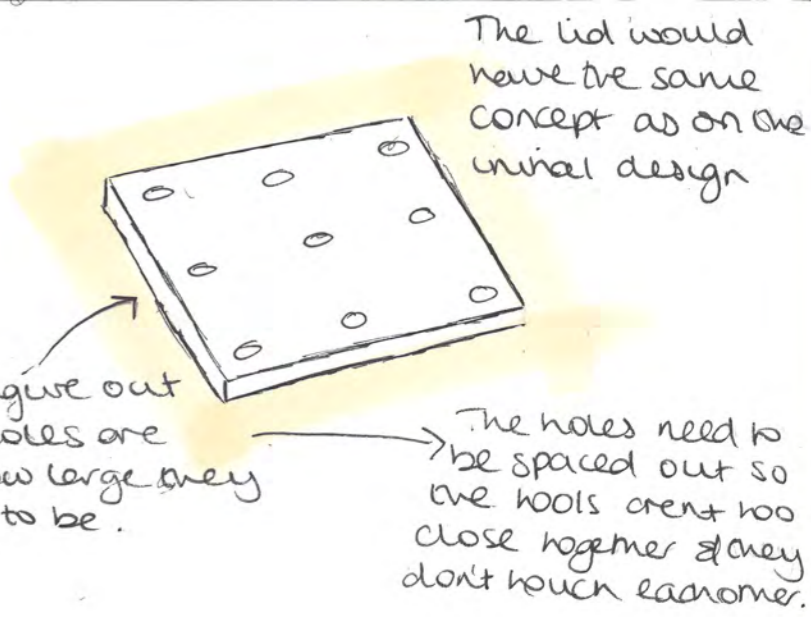 The lid would
have the same
concept as on the
initial design
gure out
oles are
ow large they
to be.
The holes need to
be spaced out so
the tools arent too
close together & they
don't touch eachother.